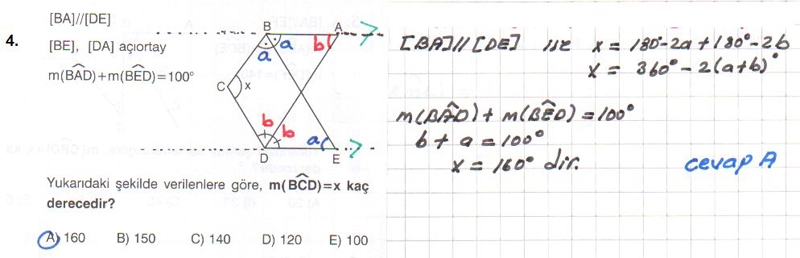 [BA]//[DE]
4.
[BE], [DA] açıortay
m(BAD)+m(BED)=100°
B
A
a
a
b
C
x
b
b
a
D
E
Yukarıdaki şekilde verilenlere göre, m(BCD)=x kaç
derecedir?
A) 160 B) 150 C) 140 D) 120 E) 100
[BA]//[DE] ise x = 180°-2a+180°-2b
x = 360°-2(a+b)°
m(BAD)+m(BED)=100°
b+a=100°
x=160° dir.
cevap A